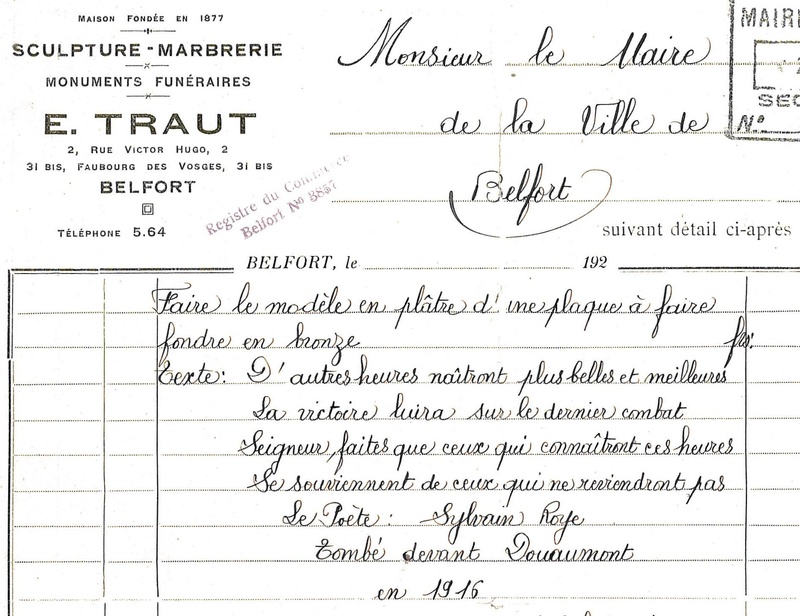 MAISON FONDÉE EN 1877
SCULPTURE - MARBRERIE
MONUMENTS FUNÉRAIRES
E. TRAUT
2, RUE VICTOR HUGO, 2
31 BIS, FAUBOURG DES VOSGES, 31 BIS
BELFORT
TÉLÉPHONE 5.64
Registre du Commerce
Belfort No 3857
MAIRI
SEC
N.º
Monsieur le Maire
de la Ville de
Belfort
suivant détail ci-après
BELFORT, le 192
Faire le modèle en plâtre d'une plaque à faire
fondre en bronze frs:
Texte: D'autres heures naîtront plus belles et meilleures
La victoire luira sur le dernier combat
Seigneur, faites que ceux qui connaîtront ces heures
Se souviennent de ceux qui ne reviendront pas
Le Poète: Sylvain Roye
Tombé devant Douaumont
en 1916